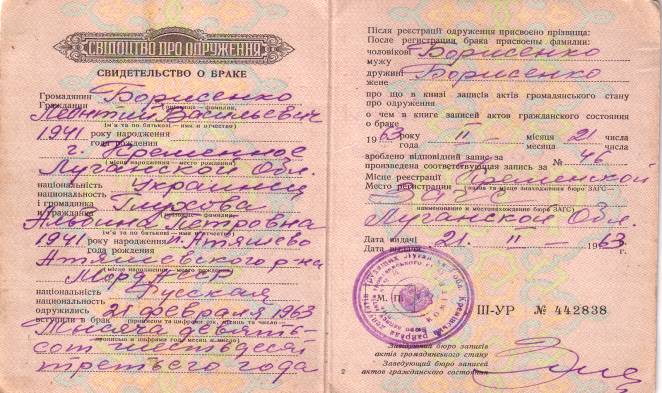 СВІДОЦТВО ПРО ОДРУЖЕННЯ
СВИДЕТЕЛЬСТВО О БРАКЕ
Громадянин Борисенко
Гражданин (прізвище — фамилия,
Леонтий Васильевич
ім'я та по батькові — имя и отчество)
1941 року народження
года рождения
г. Кременное
Луганской Обл.
(місце народження — место рождения)
національність Украинец
национальность
і громадянка Глухова
и гражданка (прізвище — фамилия,
Альвина Петровна
ім'я та по батькові — имя и отчество)
1941 року народження п. Атяшево
года рождения
Атяшевского р-на
Морд АССР
(місце народження — место рождения)
національність Русская
национальность
одружились 21 февраля 1963
вступили в брак (прописом та цифрами рік, місяць та число —
Тысяча девять-
прописью и цифрами год, месяц и число)
сот шестьдесят
третьего года
Після реєстрації одруження присвоєно прізвища:
После регистрации брака присвоены фамилии:
чоловікові Борисенко
мужу
дружині Борисенко
жене
про що в книзі записів актів громадянського стану
про одруження
о чем в книге записей актов гражданского состояния
о браке
1963 року II місяця 21 числа
года месяца числа
зроблено відповідний запис за № 46
произведена соответствующая запись за
Місце реєстрації Кременской
Место регистрации
ЗАГС
наименование и местонахождение бюро ЗАГС)
Луганской Обл.
Дата видачі 21. II 1963 г.
Дата выдачи
М. П.
III-УР № 442838
Завідуючий бюро записів
актів громадянського стану
Заведующий бюро записей
актов гражданского состояния
2